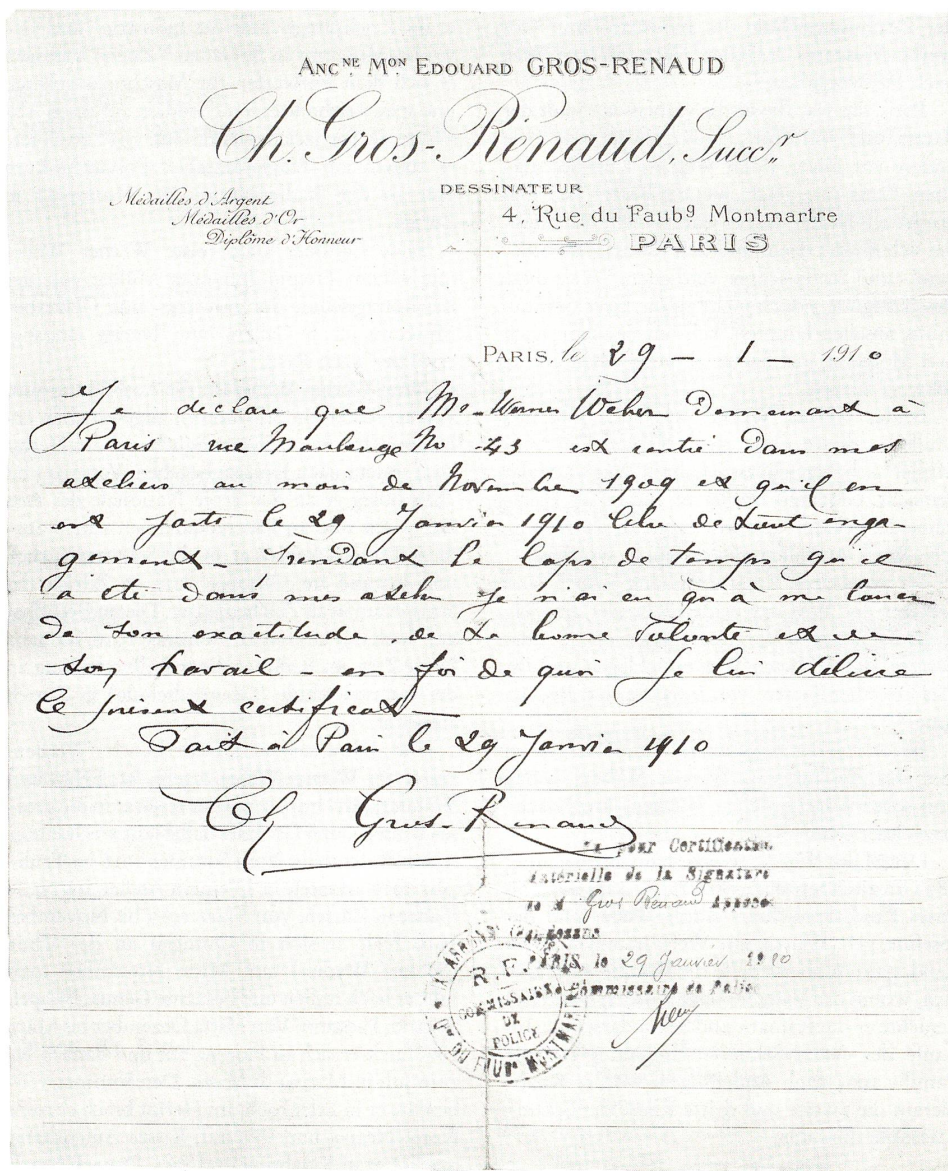 ANC^NE M^ON EDOUARD GROS-RENAUD
Ch. Gros-Renaud, Succ^r
DESSINATEUR
Médailles d'Argent
Médailles d'Or
Diplôme d'Honneur
4, Rue du Faub^g Montmartre
PARIS
PARIS, le 29 – 1 – 1910
Je declare que Mr Werner Weber Demeurant à
Paris rue Maubeuge No 43 est entré Dans mes
ateliers au mois de Novembre 1909 et qu'il en
est parti le 29 Janvier 1910 libre de tout enga-
gement – Pendant le laps de temps qu'il
a été Dans mes atelier je n'ai eu qu'à me louer
De son exactitude de sa bonne volonté et de
son travail – en foi de quoi je lui délivre
le présent certificat –
Fait à Paris le 29 Janvier 1910
Ch Gros-Renaud
pour Certification
Matérielle de la Signature
de M Gros Renaud Apposée
Ci-dessus
PARIS, le 29 Janvier 1910
Commissaire de Police
R.F.
COMMISSAIRE
DE
POLICE
IX^e ARROND^T
Q^er DU FAUB^g MONTMARTRE